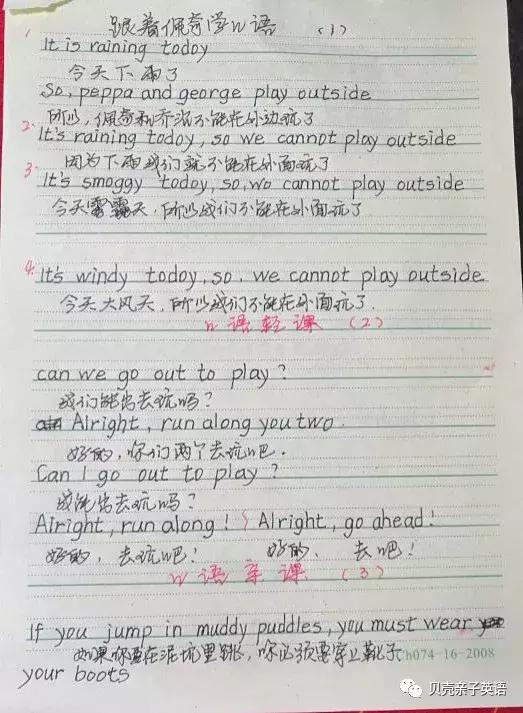 跟着佩奇学口语 (1)
1 It is raining today
今天下雨了
So, peppa and george play outside
所以,佩奇和乔治不能在外边玩了
2. It's raining today, so we cannot play outside
因为下雨我们就不能在外面玩了
3. It's smoggy today, so, we cannot play outside
今天雾霾天,所以我们不能在外面玩了
4. It's windy today, so, we cannot play outside
今天大风天,所以我们不能在外面玩了.
口语轻课 (2)
can we go out to play?
我们能出去玩吗?
Alright, run along you two.
好的,你们两个去玩吧.
Can I go out to play?
我能出去玩吗?
Alright, run along! Alright, go ahead!
好的,去玩吧! 好的、去吧!
口语亲课 (3)
If you jump in muddy puddles, you must wear
如果你要在泥坑里跳,你必须要穿上靴子
h074-16-2008
your boots
贝壳亲子英语